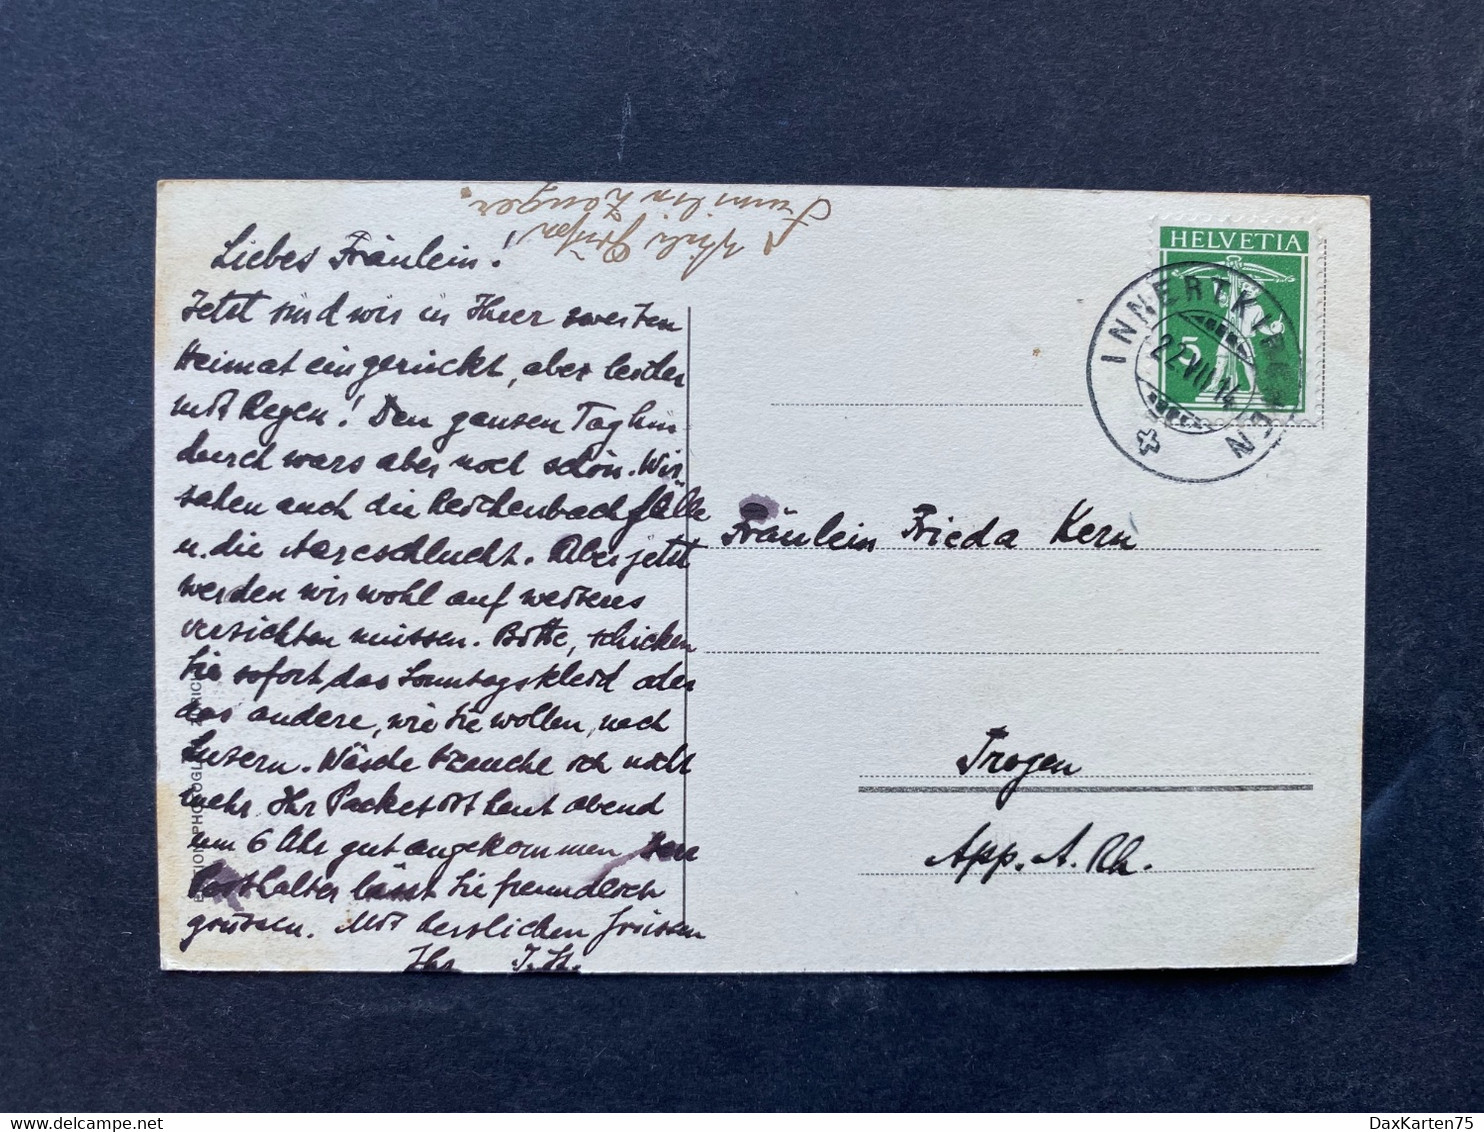 Viele Grüße
Familie Zenger.
Liebes Fräulein!
Jetzt sind wir in Ihrer zweiten
Heimat eingerückt, aber leider
mit Regen! Den ganzen Tag hin-
durch wars aber noch schön. Wir
sahen auch die Reichenbachfälle
u. die Aareschlucht. Aber jetzt
werden wir wohl auf weiteres
verzichten müssen. Bitte, schicken
Sie sofort das Sonntagskleid oder
das andere, wie Sie wollen, nach
Luzern. Wäsche brauche ich nicht
mehr. Ihr Packet ist heut abend
um 6 Uhr gut angekommen. Herr
Posthalter lässt Sie freundlich
grüssen. Mit herzlichen Grüssen
Ihr
HELVETIA
5
INNERTKIRCHEN
22.VII.14
Fräulein Frieda Kern
Trogen
App. A. Rh.
DaxKarten75